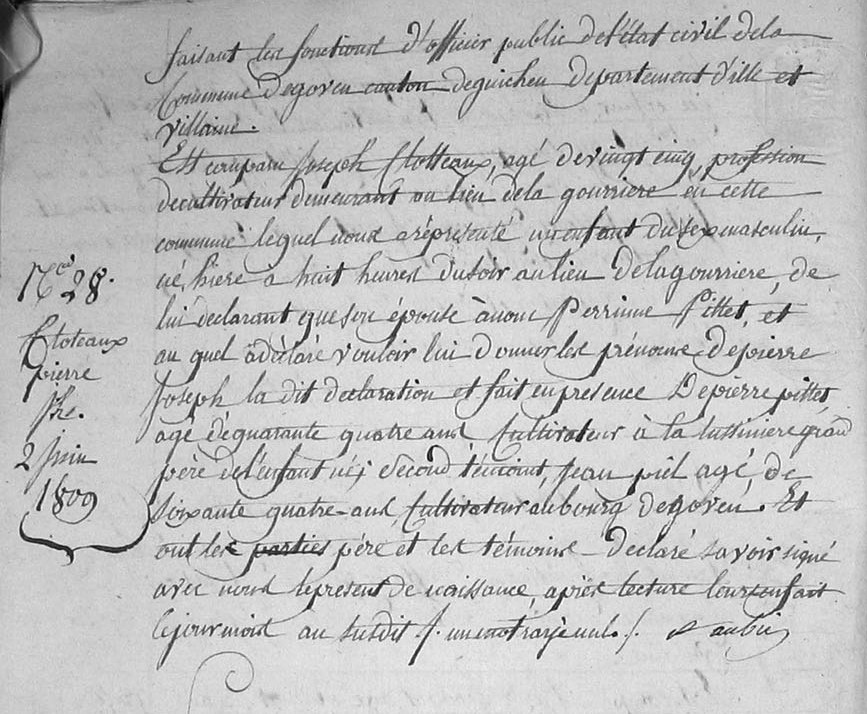 faisant les fonctions d'officier public de l'état civil dela
Commune degoven canton deguichen departement d'ille et
villaine.
Est comparu joseph Clotteaux, agé devingt cinq, profession
decultivateur demeurant au lieu dela gourriere en cette
commune lequel nous a réprésenté un enfant du sex masculin,
né hiere a huit heures du soir au lieu delagourriere, de
lui declarant que son épouse à nom Perrinne Pittet, et
au quel a déclaré vouloir lui donner les prénoms depierre
joseph la dit declaration et fait en presence Depierre pittet
agé déquarante quatre ans Cultivateur à la lussiniere grand
père del'enfant né; second témoint, jean piel agé, de
soixante quatre ans, Cultivateur aubourg degoven. Et
ont les parties pére et les témoins declaré savoir signé
avec nous lepresent de naissance, aprés lecture leursenfait
lejour mois au susdit /. un mot rasje nul. /. aubin
N° 28.
Cloteaux
pierre
jh.
2 juin
1809